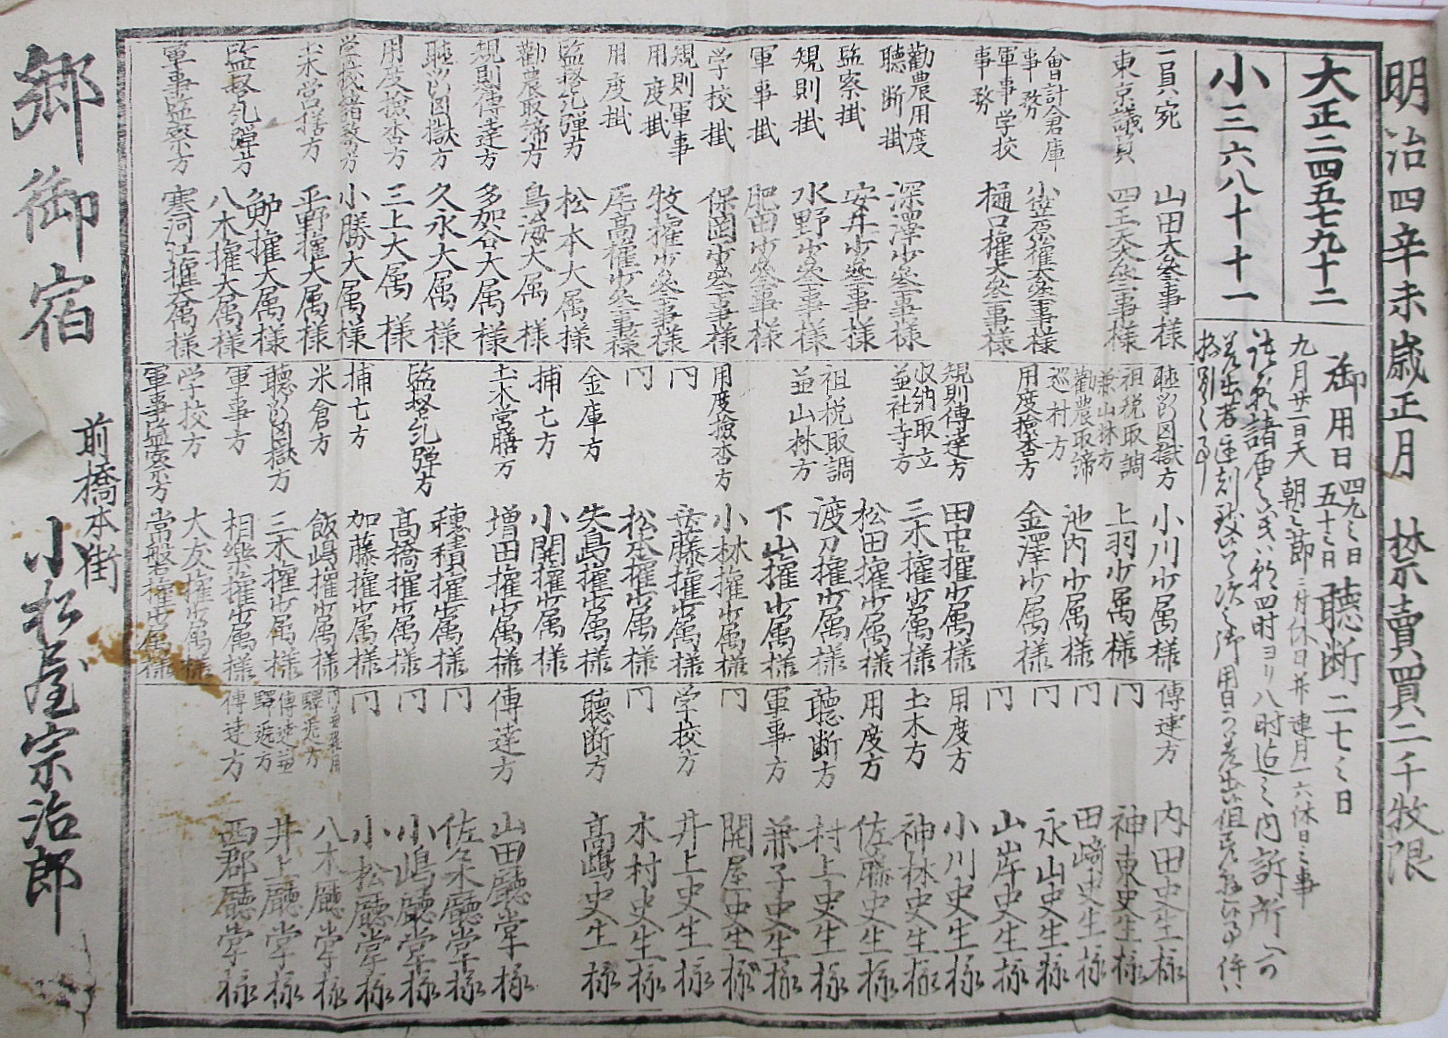 明治四辛未歳正月 禁賣買二千牧限
大正二四五七九十二
小三六八十十一
御用日 四九之日 五十之日 聴断 二七之日
九月廿二日天朝之節 三ヶ月休日并連月一六休日之事
一員宛 山田大参事様
東京議員 四王天大参事様
會計倉庫事務 小笠原權大参事様
軍事学校事務 樋口權大参事様
勸農用度聴断掛 深澤少参事様
監察掛 安井少参事様
規則掛 水野少参事様
軍事掛 肥田少参事様
学校掛 保岡少参事様
規則軍事用度掛 牧權少参事様
用度掛 尾高權少参事様
監督糺彈方 松本大属様
勸農取締方 鳥海大属様
規則傳達方 多加谷大属様
聴断囚獄方 久永大属様
用度撿査方 三上大属様
小勝大属様
土木営繕方 平野權大属様
監督糺彈方 八木權大属様
軍事監察方 寒河江權大属様
聴断囚獄方 小川少属様
租税取調兼山林方 上羽少属様
勸農取締巡村方 池内少属様
用度撿査方 金澤少属様
規則傳達方 田中權少属様
収納取立並社寺方 三木權少属様
松田權少属様
租税取調並山林方 渡刀權少属様
下山權少属様
用度撿査方 小林權少属様
〃 斎藤權少属様
〃 松本權少属様
金庫方 矢島權少属様
捕亡方 小関權少属様
土木営膳方 増田權少属様
穂積權少属様
監督糺彈方 髙橋權少属様
捕亡方 加藤權少属様
米倉方 飯嶋權少属様
聴断囚獄方 三木權少属様
軍事方 相樂權少属様
学校方 大友權少属様
軍事監察方 常盤權少属様
傳達方 内田史生様
〃 神東史生様
〃 田﨑史生様
〃 永山史生様
〃 山岸史生様
用度方 小川史生様
土木方 神林史生様
用度方 佐藤史生様
聴断方 村上史生様
軍事方 兼子史生様
〃 関屋史生様
学校方 井上史生様
〃 木村史生様
聴断方 髙嶋史生様
傳達方 山田廳掌様
〃 佐久廳掌様
〃 小嶋廳掌様
〃 小松廳掌様
驛逓方 八木廳掌様
傳達並驛逓方 井上廳掌様
傳達方 西郡廳掌様
郷御宿 前橋本街 小松屋宗治郎